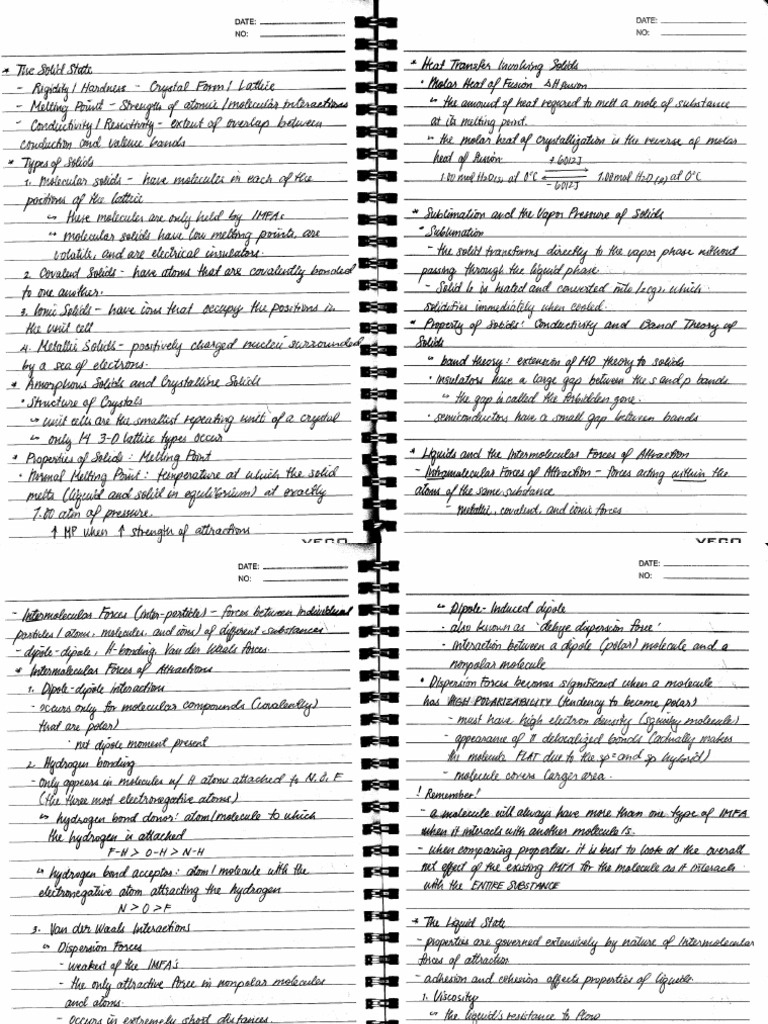 DATE:
NO:
* The Solid State
- Rigidity / Hardness - Crystal Form / Lattice
- Melting Point - Strength of atomic / molecular interactions
- Conductivity / Resistivity - extent of overlap between
conduction and valence bands
* Types of Solids
1. Molecular solids - have molecules in each of the
positions of the lattice
↳ These molecules are only held by IMFAs
↳ molecular solids have low melting points, are
volatile, and are electrical insulators.
2. Covalent Solids - have atoms that are covalently bonded
to one another.
3. Ionic Solids - have ions that occupy the positions in
the unit cell
4. Metallic Solids - positively charged nuclei surrounded
by a sea of electrons.
* Amorphous Solids and Crystalline Solids
• Structure of Crystals
↳ unit cells are the smallest repeating unit of a crystal
↳ only 14 3-D lattice types occur
* Properties of Solids: Melting Point
• Normal Melting Point: temperature at which the solid
melts (liquid and solid in equilibrium) at exactly
1.00 atm of pressure.
↑ MP when ↑ strength of attractions
VECO
DATE:
NO:
* Heat Transfer Involving Solids
• Molar Heat of Fusion ΔH fusion
↳ the amount of heat required to melt a mole of substance
at its melting point.
↳ the molar heat of crystallization is the reverse of molar
heat of fusion
+6012J
1.00 mol H2O(s) at 0°C ⇌ 1.00 mol H2O(l) at 0°C
-6012J
* Sublimation and the Vapor Pressure of Solids
• Sublimation
- the solid transforms directly to the vapor phase without
passing through the liquid phase.
- Solid is heated and converted into which
solidifies immediately when cooled.
* Property of Solids: Conductivity and Band Theory of
Solids
↳ band theory: extension of MO theory to solids
• insulators have a large gap between the s and p bands
↳ the gap is called the forbidden zone.
• semiconductors have a small gap between bands
* Liquids and the Intermolecular Forces of Attraction
- Intramolecular Forces of Attraction - forces acting within the
atoms of the same substance
- metallic, covalent, and ionic forces
VECO
DATE:
NO:
- Intermolecular Forces (inter-particles) - forces between individual
particles (atoms, molecules, and ions) of different substances
- dipole-dipole, H-bonding, Van der Waals Forces.
* Intermolecular Forces of Attractions
1. Dipole-dipole interactions
- occurs only for molecular compounds (covalently)
that are polar)
• net dipole moment present
2. Hydrogen bonding
- Only appears in molecules w/ H atoms attached to N, O, F
(the three most electronegative atoms)
↳ hydrogen bond donor: atom/molecule to which
the hydrogen is attached
F-H > O-H > N-H
↳ hydrogen bond acceptor: atom / molecule with the
electronegative atom attracting the hydrogen
N > O > F
3. Van der Waals Interactions
↳ Dispersion Forces
- weakest of the IMFA's
- the only attractive force in nonpolar molecules
and atoms.
- occurs in extremely short distances.
DATE:
NO:
↳ Dipole-Induced dipole
- also known as 'debye dispersion force'
- interaction between a dipole (polar) molecule and a
nonpolar molecule
• Dispersion Forces becomes significant when a molecule
has HIGH POLARIZABILITY (tendency to become polar)
- must have high electron density (squishy molecule)
- appearance of π delocalized bonds (actually makes
the molecule FLAT due to the sp² and sp hybrid)
- molecule covers larger area.
! Remember!
- a molecule will always have more than one type of IMFA
when it interacts with another molecule/s.
- when comparing properties, it is best to look at the overall
net effect of the existing IMFA for the molecule as it interacts
with the ENTIRE SUBSTANCE
* The Liquid State
- properties are governed extensively by nature of Intermolecular
forces of attraction
- adhesion and cohesion affects properties of liquids.
1. Viscosity
↳ the liquid's resistance to flow